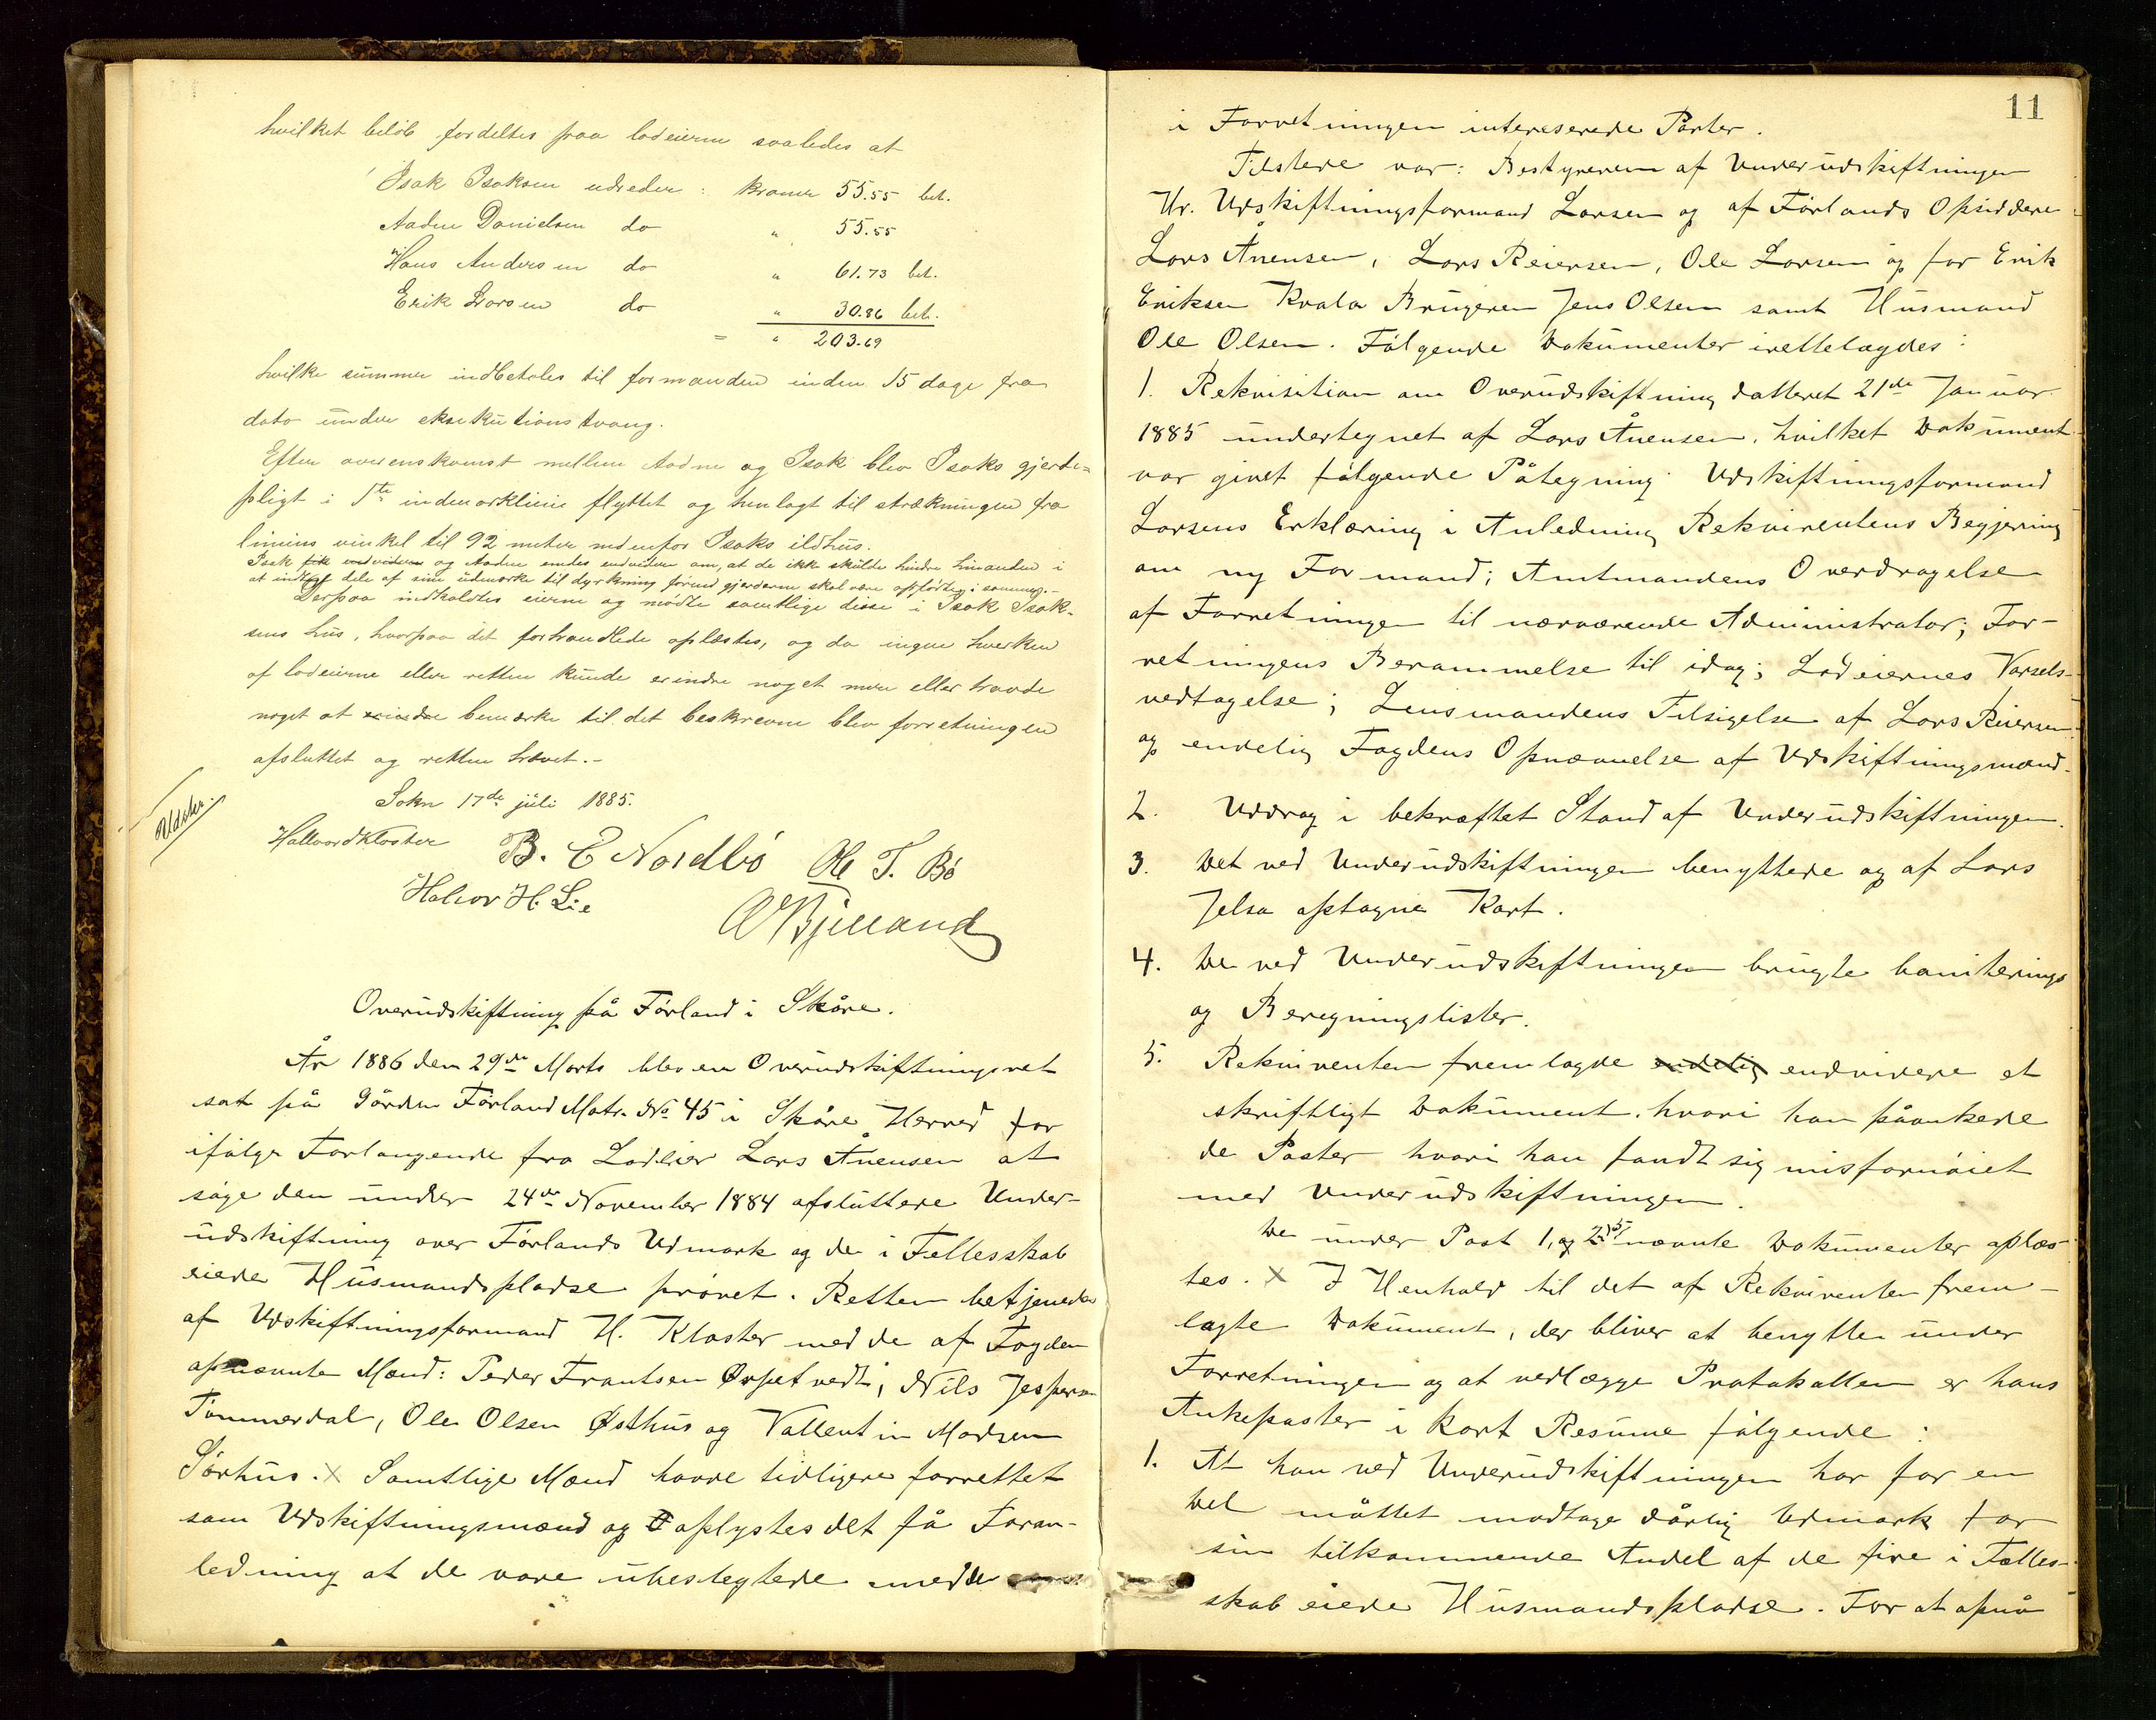 hvilket beløb fordeltes paa lodeierne saaledes at
Isak Isaksen udreder: kroner 55.55 bet.
Aadne Danielsen do " 55.55
Hans Andersen do " 61.73 bet.
Erik Larsen do " 30.86 bet.
= " 203.69
hvilke summer indbetales til formanden inden 15 dage fra
dato under eksekutionstvang.
Efter overenskomst mellem Aadne og Isak blev Isaks gjerde=
pligt i 1ste indmarklinie flyttet og henlagt til strækningen fra
liniens vinkel til 92 meter nedenfor Isaks ildhus.
Isak og Aadne endes endvidere om, at de ikke skulde hindre hinanden i
at indtage dele af sine udmarke til dyrkning forend gjerderne skal være opførte i sommer.-
Derpaa indkaldtes eierne og mødte samtlige disse i Isak Isak-
sens hus, hvorpaa det forhandlede oplæstes, og da ingen hverken
af lodeierne eller retten kunde erindre noget mere eller havde
noget at erindre bemærke til det beskrevne blev forretningen
afsluttet og retten hævet.-
Sokn 17de juli 1885.
Udskr.
Hallvard Kloster B. C Nordbö Ole T. Bö
Halvor H. Lie
O Bjelland
Overudskiftning på Førland i Skåre.
År 1886 den 29de Marts blev en Overudskiftningsret
sat på Gården Førland Matr. No 45 i Skåre Herred for
ifølge Forlangende fra Lodeier Lars Ånensen at
søge den under 24de November 1884 afsluttede Under-
udskiftning over Førlands Udmark og de i Fellesskab
eiede Husmandspladse prøvet. Retten betjenedes
af Udskiftningsformand H. Kloster med de af Fogden
opnævnte Mænd: Peder Frantsen Ørpetvedt, Nils Jespersen
Tømmerdal, Ole Olsen Østhus og Vallentin Madsen
Sørhus. x Samtlige Mænd havde tidligere forrettet
som Udskiftningsmænd og oplystes det på Foran-
ledning at de vare ubeslegtede med de
11
i Forretningen interesserede Parter.
Tilstede var: Bestyreren af Underudskiftningen
Hr. Udskiftningsformand Larsen og af Førlands Opsiddere
Lars Ånensen, Lars Reiersen, Ole Larsen og for Erik
Eriksen Kvala Brugeren Jens Olsen samt Husmand
Ole Olsen. Følgende Dokumenter irettelagdes:
1. Rekvisition om Overudskiftning datteret 21de Januar
1885 undertegnet af Lars Ånensen, hvilket Dokument
var givet følgende Påtegning: Udskiftningsformand
Larsens Erklæring i Anledning Rekvirentens Begjering
om ny Formand; Amtmandens Overdragelse
af Forretningen til nærværende Administrator; For-
retningens Berammelse til idag; Lodeiernes Varsels-
vedtagelse; Lensmandens Tilsigelse af Lars Reiersen
og endelig Fogdens Opnævnelse af Udskiftningsmænd.
2. Uddrag i bekræftet Stand af Underudskiftningen.
3. Det ved Underudskiftningen benyttede og af Lars
Jelsa optagne Kart.
4. De ved Underudskiftningen brugte boniterings
og Beregningslister.
5. Rekvirenten fremlagde endelig endvidere et
skriftligt Dokument, hvori han påankede
de Poster hvori han fandt sig misfornøiet
med Underudskiftningen.
De under Post 1, og 2, 5 nævnte Dokumenter oplæs-
tes. x I Henhold til det af Rekvirenten frem-
lagte Dokument, der bliver at benytte under
Forretningen og at vedlægge Protokollen er hans
Ankeposter i kort Resume følgende:
1. At han ved Underudskiftningen har for en
Del måttet modtage dårlig Udmark for
sin tilkommende Andel af de fire i Fælles-
skab eiede Husmandspladse. For at opnå